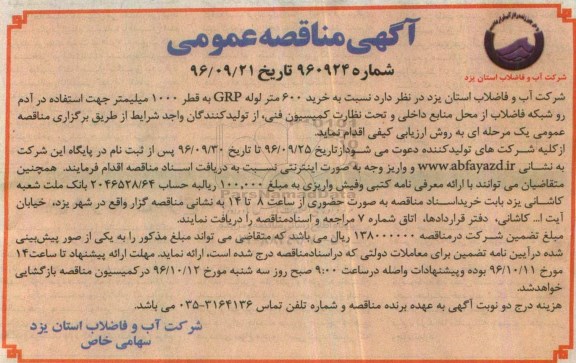 آگهی مناقصه عمومی
شماره ۹۶۰۹۲۴ تاریخ ۹۶/۰۹/۲۱
شرکت آب و فاضلاب استان یزد
شرکت آب و فاضلاب استان یزد در نظر دارد نسبت به خرید ۶۰۰ متر لوله GRP به قطر ۱۰۰۰ میلیمتر جهت استفاده در آدم
رو شبکه فاضلاب از محل منابع داخلی و تحت نظارت کمیسیون فنی، از تولیدکنندگان واجد شرایط از طریق برگزاری مناقصه
عمومی یک مرحله ای به روش ارزیابی کیفی اقدام نماید.
ازکلیه شرکت های تولیدکننده دعوت می شودازتاریخ ۹۶/۰۹/۲۵ تا تاریخ ۹۶/۰۹/۳۰ پس از ثبت نام در پایگاه این شرکت
به نشانی www.abfayazd.ir و واریز وجه به صورت اینترنتی نسبت به دریافت اسناد مناقصه اقدام فرمایند. همچنین
متقاضیان می توانند با ارائه معرفی نامه کتبی وفیش واریزی به مبلغ ۱۰۰,۰۰۰ ریالبه حساب ۲۰۴۶۵۲۸/۶۴ بانک ملت شعبه
کاشانی یزد بابت خریداسناد مناقصه به صورت حضوری از ساعت ۸ تا ۱۴ به نشانی مناقصه گزار واقع در شهر یزد، خیابان
آیت ا... کاشانی، دفتر قراردادها، اتاق شماره ۷ مراجعه و اسنادمناقصه را دریافت نمایند.
مبلغ تضمین شرکت درمناقصه ۱۳۸۰۰۰۰۰۰ ریال می باشد که متقاضی می تواند مبلغ مذکور را به یکی از صور پیش‌بینی
شده درآیین نامه تضمین برای معاملات دولتی که دراسنادمناقصه درج شده است، ارائه نماید. مهلت ارائه پیشنهاد تا ساعت۱۴
مورخ ۹۶/۱۰/۱۱ بوده وپیشنهادات واصله درساعت ۹:۰۰ صبح روز سه شنبه مورخ ۹۶/۱۰/۱۲ درکمیسیون مناقصه بازگشایی
خواهدشد.
هزینه درج دو نوبت آگهی به عهده برنده مناقصه و شماره تلفن تماس ۳۱۶۴۱۳۶-۰۳۵ می باشد.
شرکت آب و فاضلاب استان یزد
سهامی خاص